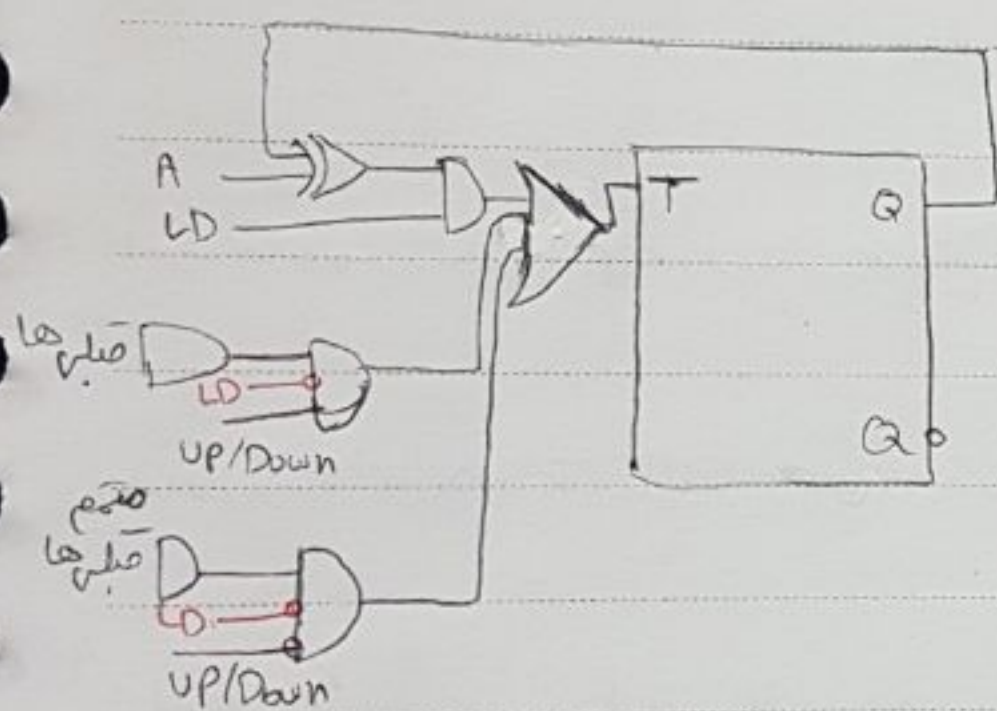 A
LD
T
Q
قبلی ها
LD
UP/Down
Q
متمم
قبلی ها
LD
UP/Down